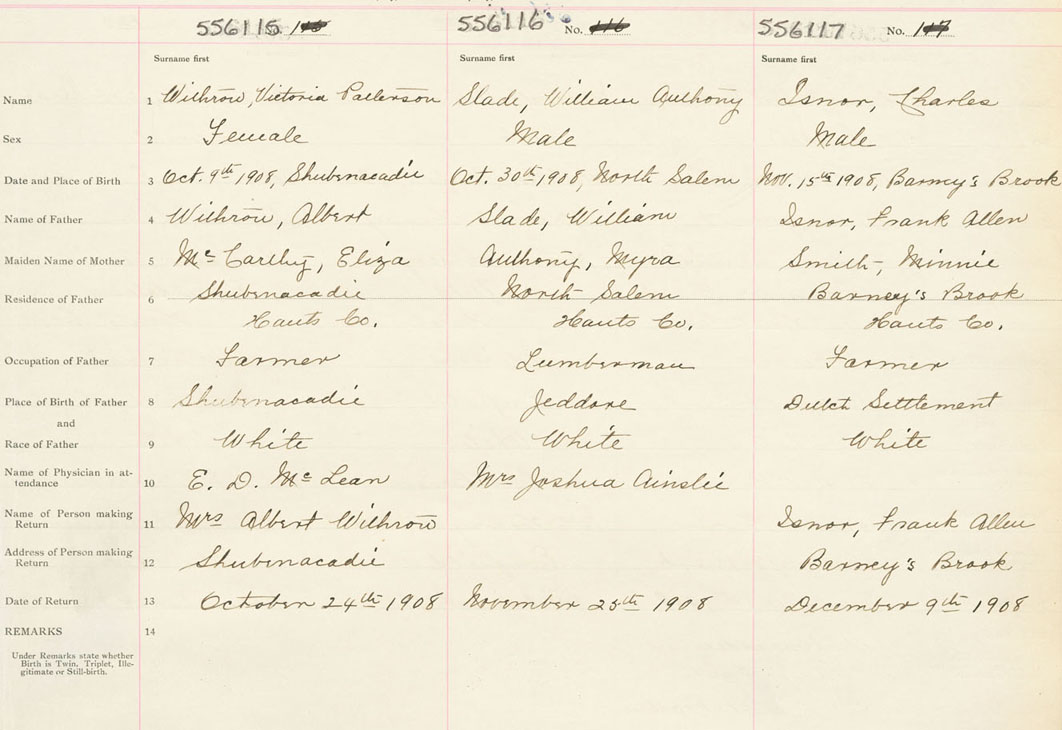 556115
556116 No.
556117 No.
Surname first Surname first Surname first
Name 1 Withrow, Victoria Patterson Slade, William Anthony Isnor, Charles
Sex 2 Female Male Male
Date and Place of Birth 3 Oct. 9th 1908, Shubenacadie Oct. 30th 1908, North Salem Nov. 15th 1908, Barney's Brook
Name of Father 4 Withrow, Albert Slade, William Isnor, Frank Allen
Maiden Name of Mother 5 McCarthy, Eliza Anthony, Myra Smith, Minnie
Residence of Father 6 Shubenacadie North Salem Barney's Brook
Hants Co. Hants Co. Hants Co.
Occupation of Father 7 Farmer Lumberman Farmer
Place of Birth of Father 8 Shubenacadie Jeddore Dutch Settlement
and
Race of Father 9 White White White
Name of Physician in at-
tendance 10 E. D. McLean Mrs Joshua Ainslie
Name of Person making
Return 11 Mrs Albert Withrow Isnor, Frank Allen
Address of Person making
Return 12 Shubenacadie Barney's Brook
Date of Return 13 October 24th 1908 November 25th 1908 December 9th 1908
REMARKS 14
Under Remarks state whether
Birth is Twin, Triplet, Ille-
gitimate or Still-birth.